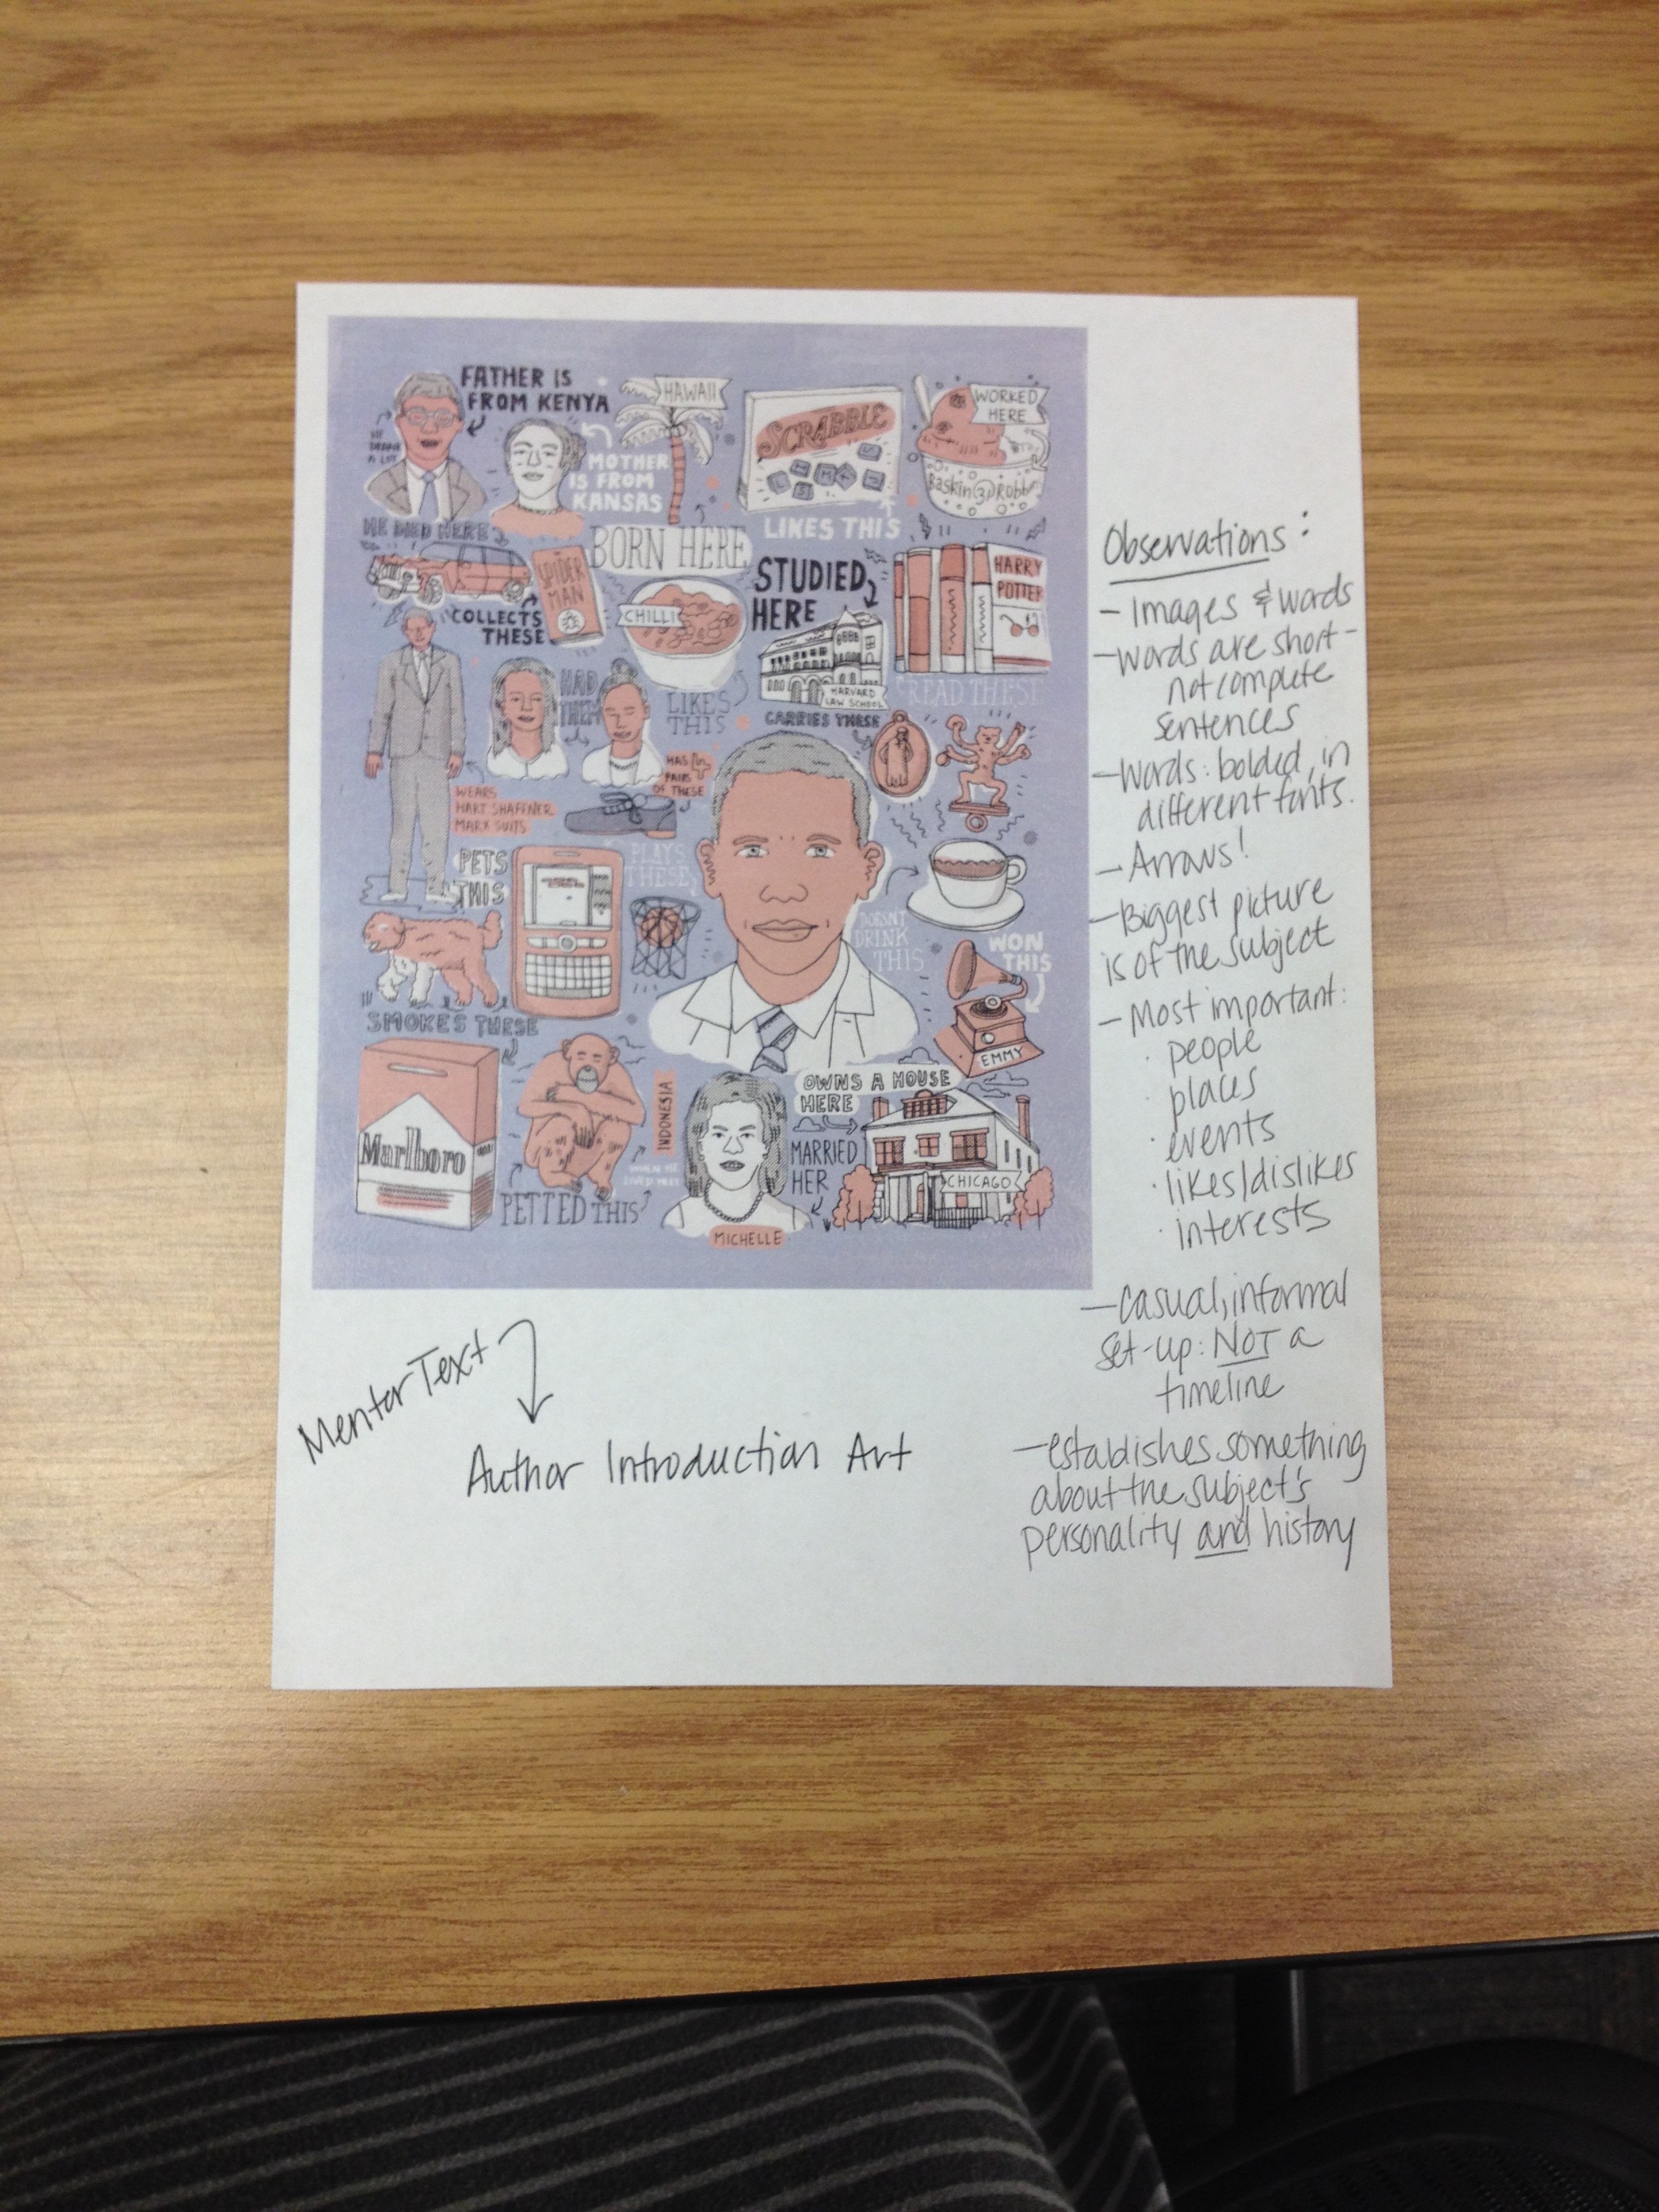 FATHER IS
FROM KENYA
HE
DRANK
A LOT
MOTHER
IS FROM
KANSAS
HAWAII
BORN HERE
SCRABBLE
LIKES THIS
WORKED
HERE
Baskin 31 Robb
HE DIED HERE
SPIDER
MAN
COLLECTS
THESE
CHILLI
LIKES
THIS
STUDIED
HERE
HARVARD
LAW SCHOOL
HARRY
POTTER
READ THESE
HAD
THEM
WEARS
HART SHAFFNER
MARX SUITS
HAS 4
PAIRS
OF THESE
CARRIES THESE
PETS
THIS
PLAYS
THESE
DOESNT
DRINK
THIS
WON
THIS
EMMY
SMOKES THESE
Marlboro
PETTED THIS
INDONESIA
WHEN HE
LIVED HERE
MICHELLE
MARRIED
HER
OWNS A HOUSE
HERE
CHICAGO
Observations:
- Images & words
- words are short -
not compute
sentences
- Words: bolded, in
different fonts.
- Arrows!
- Biggest picture
is of the subject
- Most important:
· people
· places
· events
· likes/dislikes
· interests
- casual, informal
set-up: NOT a
timeline
- establishes something
about the subject's
personality and history
Mentor Text
Author Introduction Art